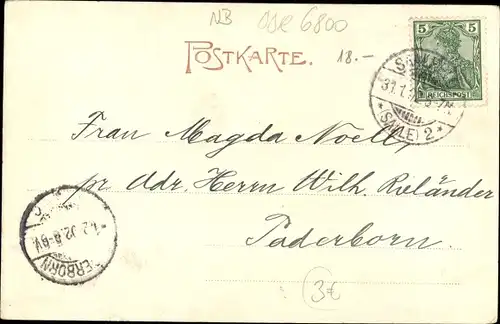 NB OSR 6800
POSTKARTE.
18.-
5 5
REICHSPOST
SAALF
31.1.
*(SAALE) 2*
Frau Magda Noell,
pr Adr. Herrn Wilh. Rieländer
Paderborn.
1.2.02.
ERBORN
3€